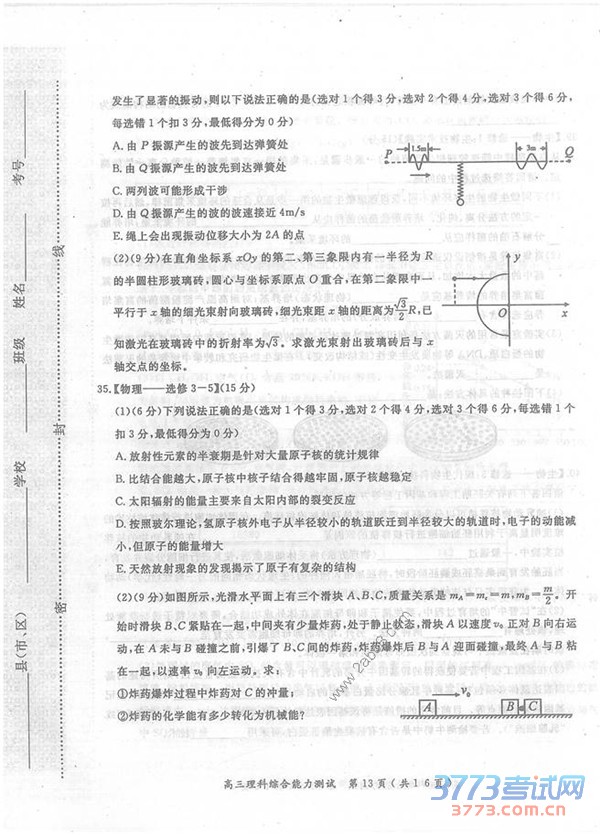 发生了显著的振动,则以下说法正确的是(选对1个得3分,选对2个得4分,选对3个得6分,
每选错1个扣3分,最低得分为0分)
A.由P振源产生的波先到达弹簧处
B.由Q振源产生的波先到达弹簧处
C.两列波可能形成干涉
D.由Q振源产生的波的波速接近4m/s
E.绳上会出现振动位移大小为2A的点
P 1.5m 3m Q
(2)(9分)在直角坐标系xOy的第二、第三象限内有一半径为R
的半圆柱形玻璃砖,圆心与坐标系原点O重合,在第二象限中一
平行于x轴的细光束射向玻璃砖,细光束距x轴的距离为√3/2R,已
知激光在玻璃砖中的折射率为√3。求激光束射出玻璃砖后与x
轴交点的坐标。
y
O x
35.【物理——选修3-5】(15分)
(1)(6分)下列说法正确的是(选对1个得3分,选对2个得4分,选对3个得6分,每选错1个
扣3分,最低得分为0分)
A.放射性元素的半衰期是针对大量原子核的统计规律
B.比结合能越大,原子核中核子结合得越牢固,原子核越稳定
C.太阳辐射的能量主要来自太阳内部的裂变反应
D.按照玻尔理论,氢原子核外电子从半径较小的轨道跃迁到半径较大的轨道时,电子的动能减
小,但原子的能量增大
E.天然放射现象的发现揭示了原子有复杂的结构
(2)(9分)如图所示,光滑水平面上有三个滑块A、B、C,质量关系是mA=mc=m,mB=m/2。开
始时滑块B、C紧贴在一起,中间夹有少量炸药,处于静止状态,滑块A以速度v0正对B向右运
动,在A未与B碰撞之前,引爆了B、C间的炸药,炸药爆炸后B与A迎面碰撞,最终A与B粘
在一起,以速率v0向左运动。求:
①炸药爆炸过程中炸药对C的冲量;
②炸药的化学能有多少转化为机械能?
v0
A B C
高三理科综合能力测试 第13页(共16页)
县(市、区) 学校 班级 姓名 考号
密 封 线
3773考试网
www.3773.com.cn